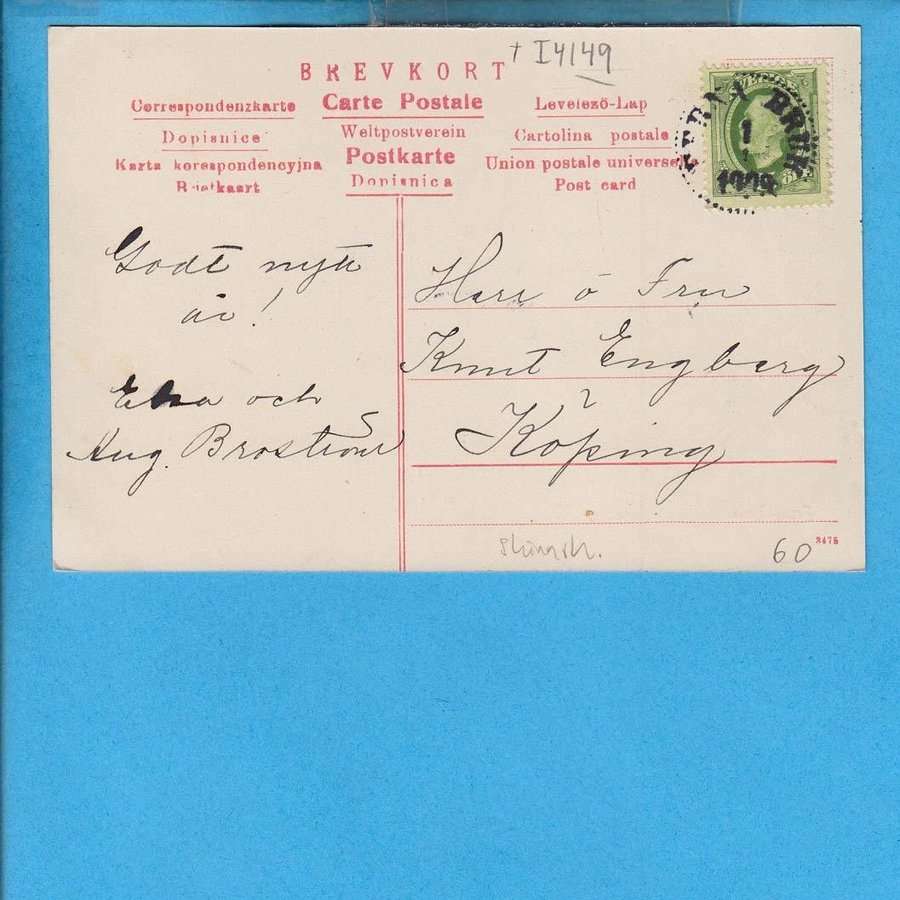 BREVKORT
+ I4149
Correspondenzkarte
Carte Postale
Levelező-Lap
Dopisnice
Weltpostverein
Cartolina postale
Karta korespondencyjna
Postkarte
Union postale universe
Briefkaart
Dopisnica
Post card
SVERIGE
BRUK
1
1
Godt nytt
år!
och
Aug. Broström
Herr o Fru
Knut Engberg
Köping
60